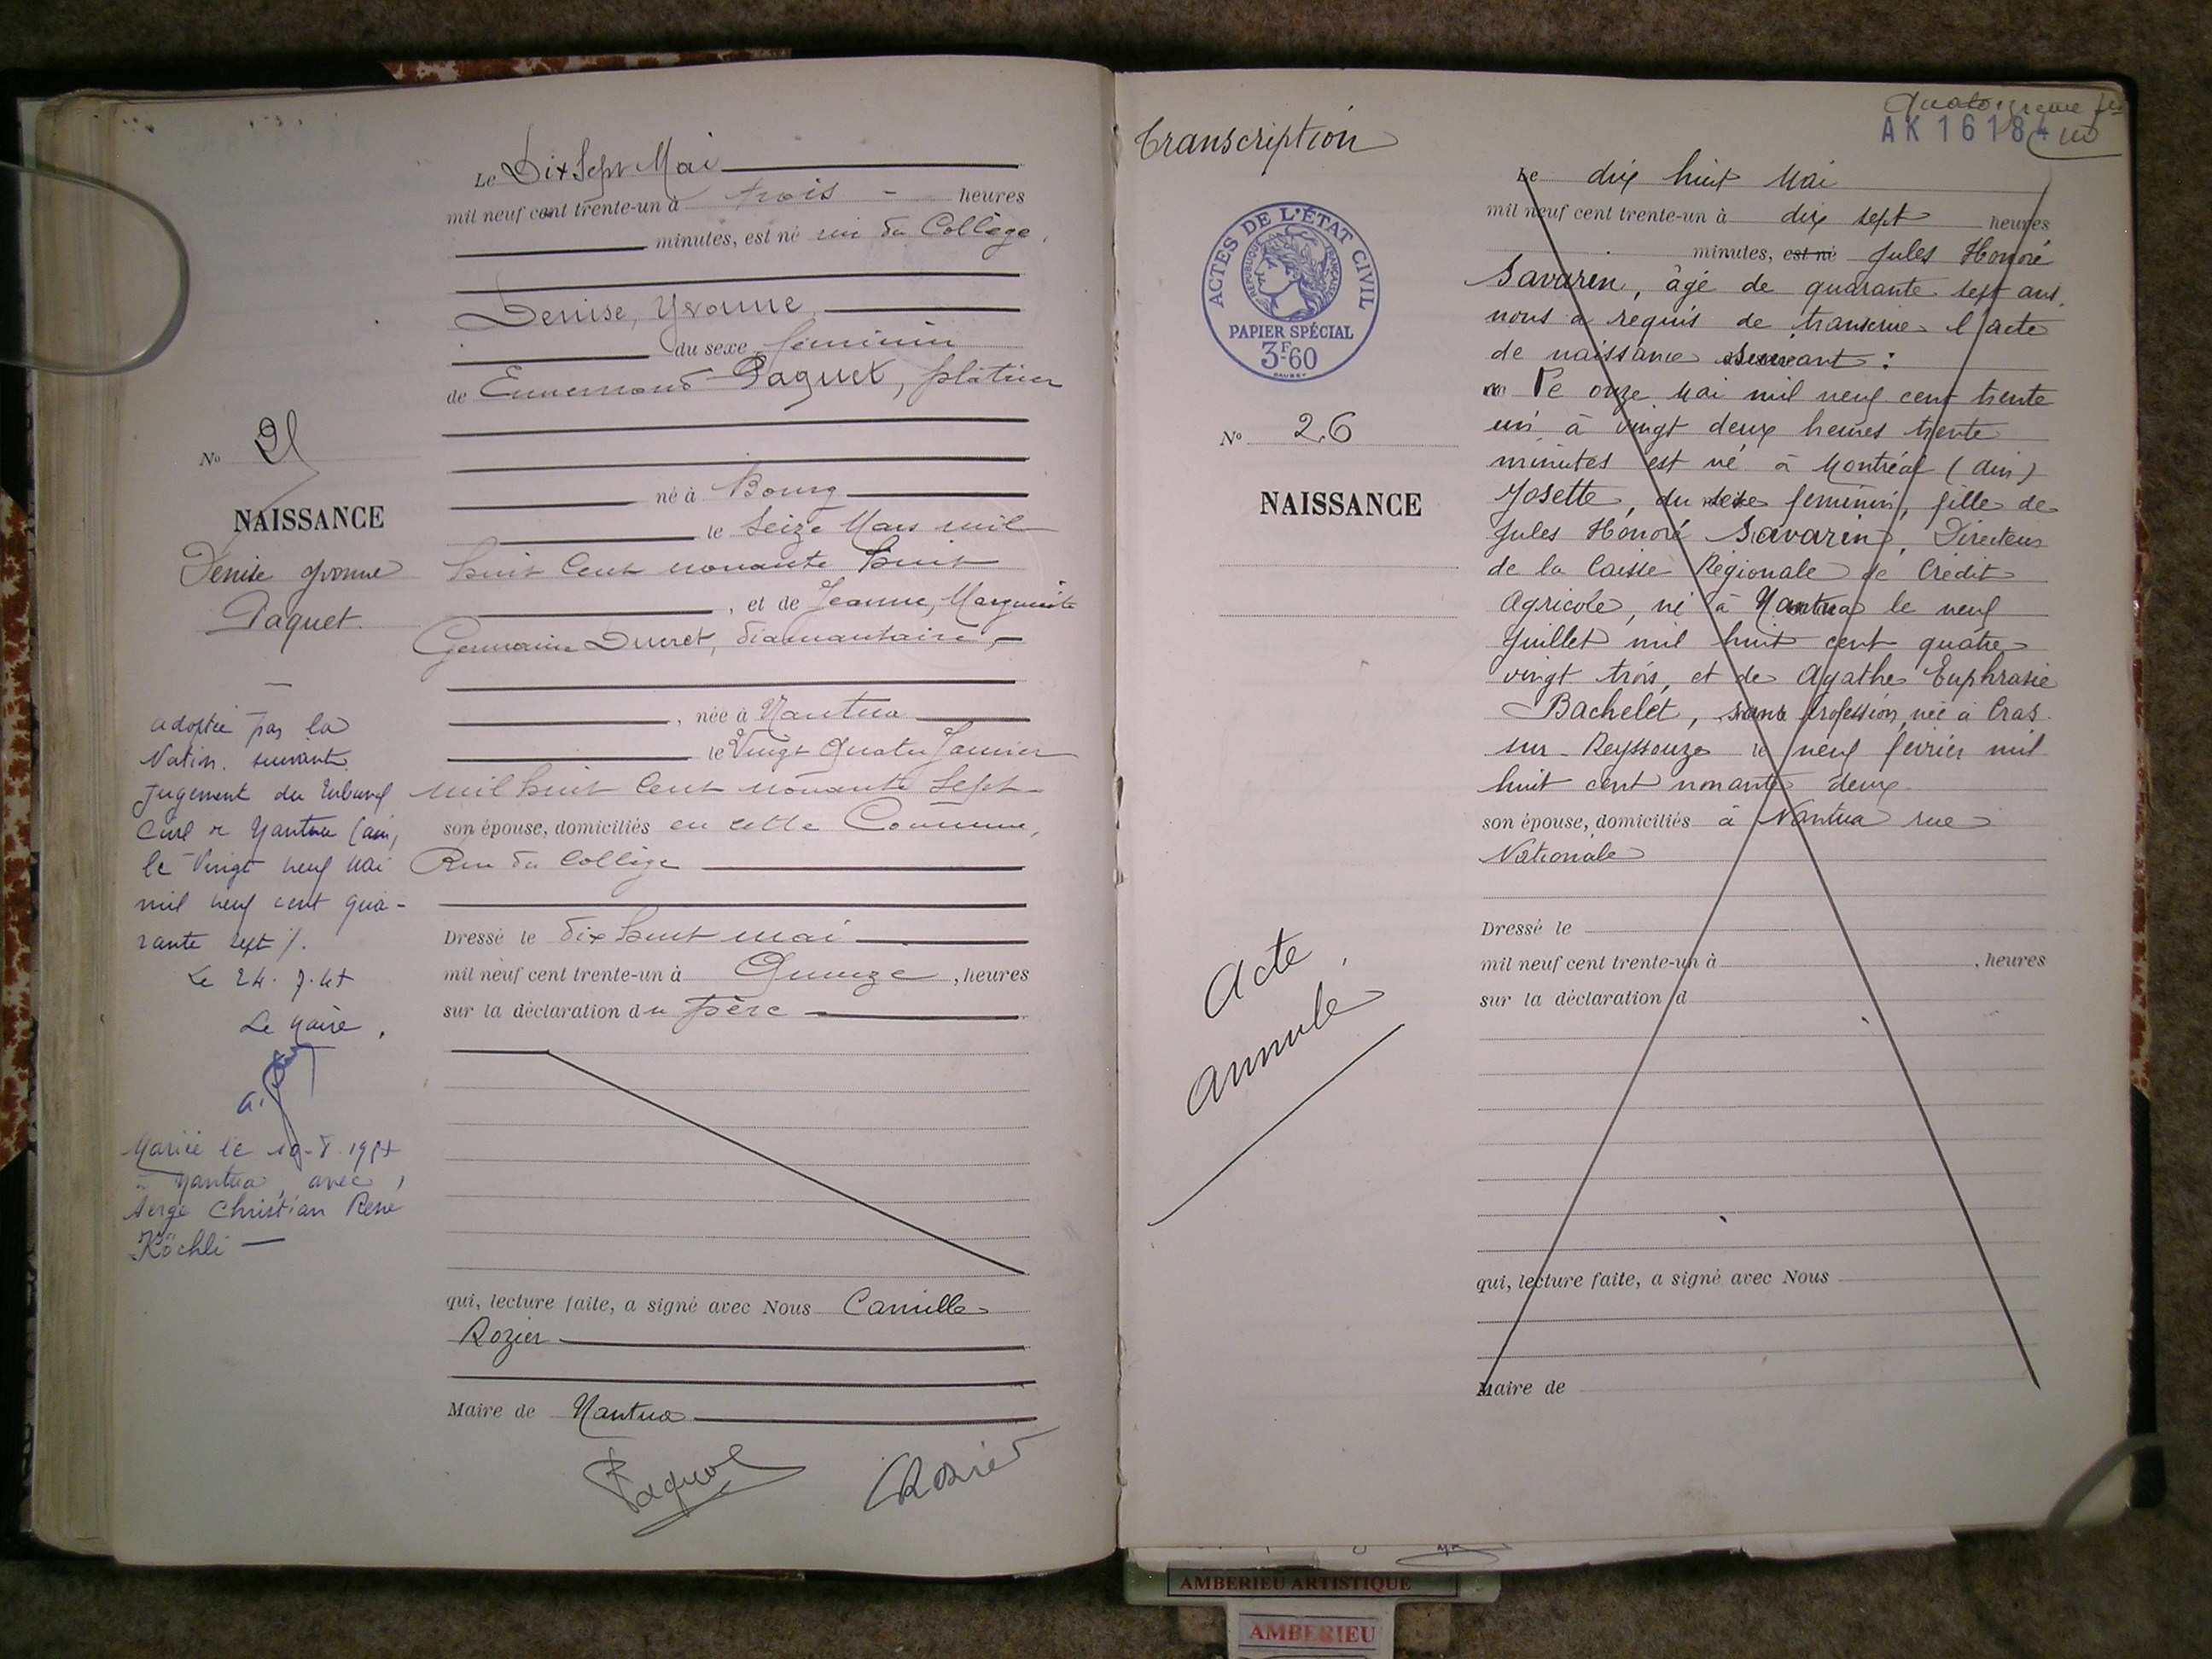 Le Dix Sept Mai
mil neuf cent trente-un à trois heures
minutes, est né rue du Collège,
Denise, Yvonne
du sexe féminin
de Ennemond Paquet, plâtrier
né à Bourg
le Seize Mars mil
huit cent nonante huit
, et de Jeanne, Marguerite
Germaine Ducret, diamantaire,
, née à Nantua
le Vingt Quatre Janvier
mil huit cent nonante sept
son épouse, domiciliés en cette Commune,
Rue du Collège
Dressé le dix huit mai
mil neuf cent trente-un à Quinze, heures
sur la déclaration du père
qui, lecture faite, a signé avec Nous Camille
Rozier
Maire de Nantua
Paquet
CRozier
No
NAISSANCE
Denise Yvonne
Paquet
adoptée par la
Nation. suivant
jugement du Tribunal
Civil de Nantua (ain,
le Vingt neuf Mai
mil neuf cent qua-
rante sept /.
Le 24. 7. 47
Le Maire,
Mariée le
à Nantua, avec,
Serge Christian René
Köchli
Transcription
AK 16184
ACTES DE L'ÉTAT CIVIL
RÉPUBLIQUE FRANÇAISE
PAPIER SPÉCIAL
3F60
No 26
NAISSANCE
Acte
annulé
Le dix huit Mai
mil neuf cent trente-un à dix sept heures
minutes, est né Jules Honoré
Savarin, âgé de quarante sept ans,
nous a requis de transcrire l'acte
de naissance suivant :
Le onze Mai mil neuf cent trente
un à vingt deux heures trente
minutes est né à Montréal (ain)
Josette, du sexe féminin, fille de
Jules Honoré Savarin, Directeur
de la Caisse Régionale de Crédit
Agricole, né à Nantua le neuf
Juillet mil huit cent quatre
vingt trois, et de Agathe Euphrasie
Bachelet, sans profession, née à Cras
sur-Reyssouze le neuf février mil
huit cent nonante deux
son épouse, domiciliés à Nantua rue
Nationale
Dressé le
mil neuf cent trente-un à , heures
sur la déclaration d
qui, lecture faite, a signé avec Nous
Maire de
AMBERIEU ARTISTIQUE
AMBERIEU